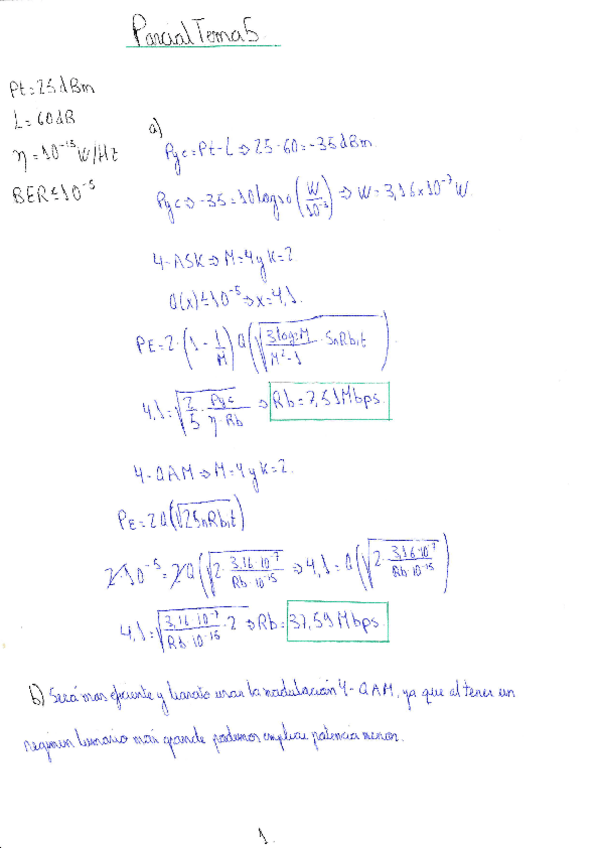 Parcial Tema 5
Pt = 25 dBm
L = 60 dB
η = 10^-15 W/Hz
BER ≤ 10^-5
a)
Pgc = Pt - L ⇒ 25 - 60 = -35 dBm
Pgc ⇒ -35 = 10 log10 (W/10^-3) ⇒ W = 3,16 x 10^-7 W.
4-ASK ⇒ M = 4 y K = 2
Q(x) ≤ 10^-5 ⇒ x = 4,1.
PE = 2 · (1 - 1/M) Q(√(3 log2 M / (M² - 1) · SnRb,t))
4,1 = √(2/5 · Pgc/(η · Rb)) ⇒ Rb = 7,51 Mbps.
4-QAM ⇒ M = 4 y K = 2.
PE = 2Q(√(2SnRb,t))
2·10^-5 = 2Q(√(2 · 3,16·10^-7/(Rb·10^-15))) ⇒ 4,1 = Q(√(2 · 3,16·10^-7/(Rb·10^-15)))
4,1 = √(3,16·10^-7/(Rb·10^-15) · 2) ⇒ Rb = 37,59 Mbps
b) Será mas eficiente y barato usar la modulación 4-QAM, ya que al tener un
regimen binario más grande podemos emplear potencia menor.
1.